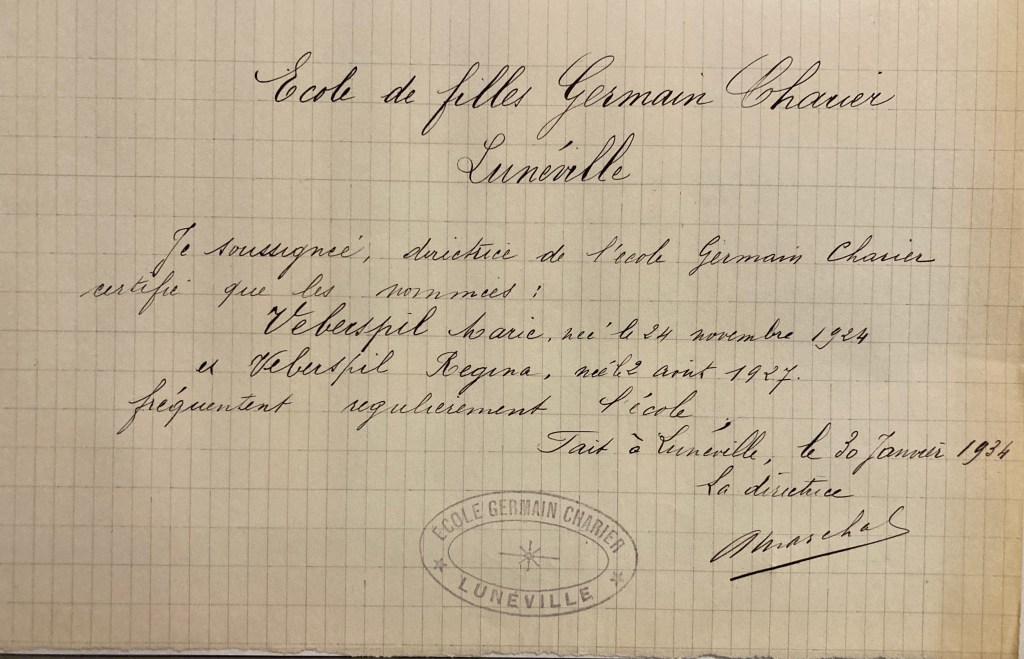 Ecole de filles Germain Charier
Lunéville
Je soussignée, directrice de l'école Germain Charier
certifie que les nommées :
Veberspil Marie, née le 24 novembre 1924
et Veberspil Regina, née le 2 août 1927.
fréquentent regulièrement l'école.
Fait à Lunéville, le 30 Janvier 1934
La directrice
ECOLE GERMAIN CHARIER
LUNÉVILLE